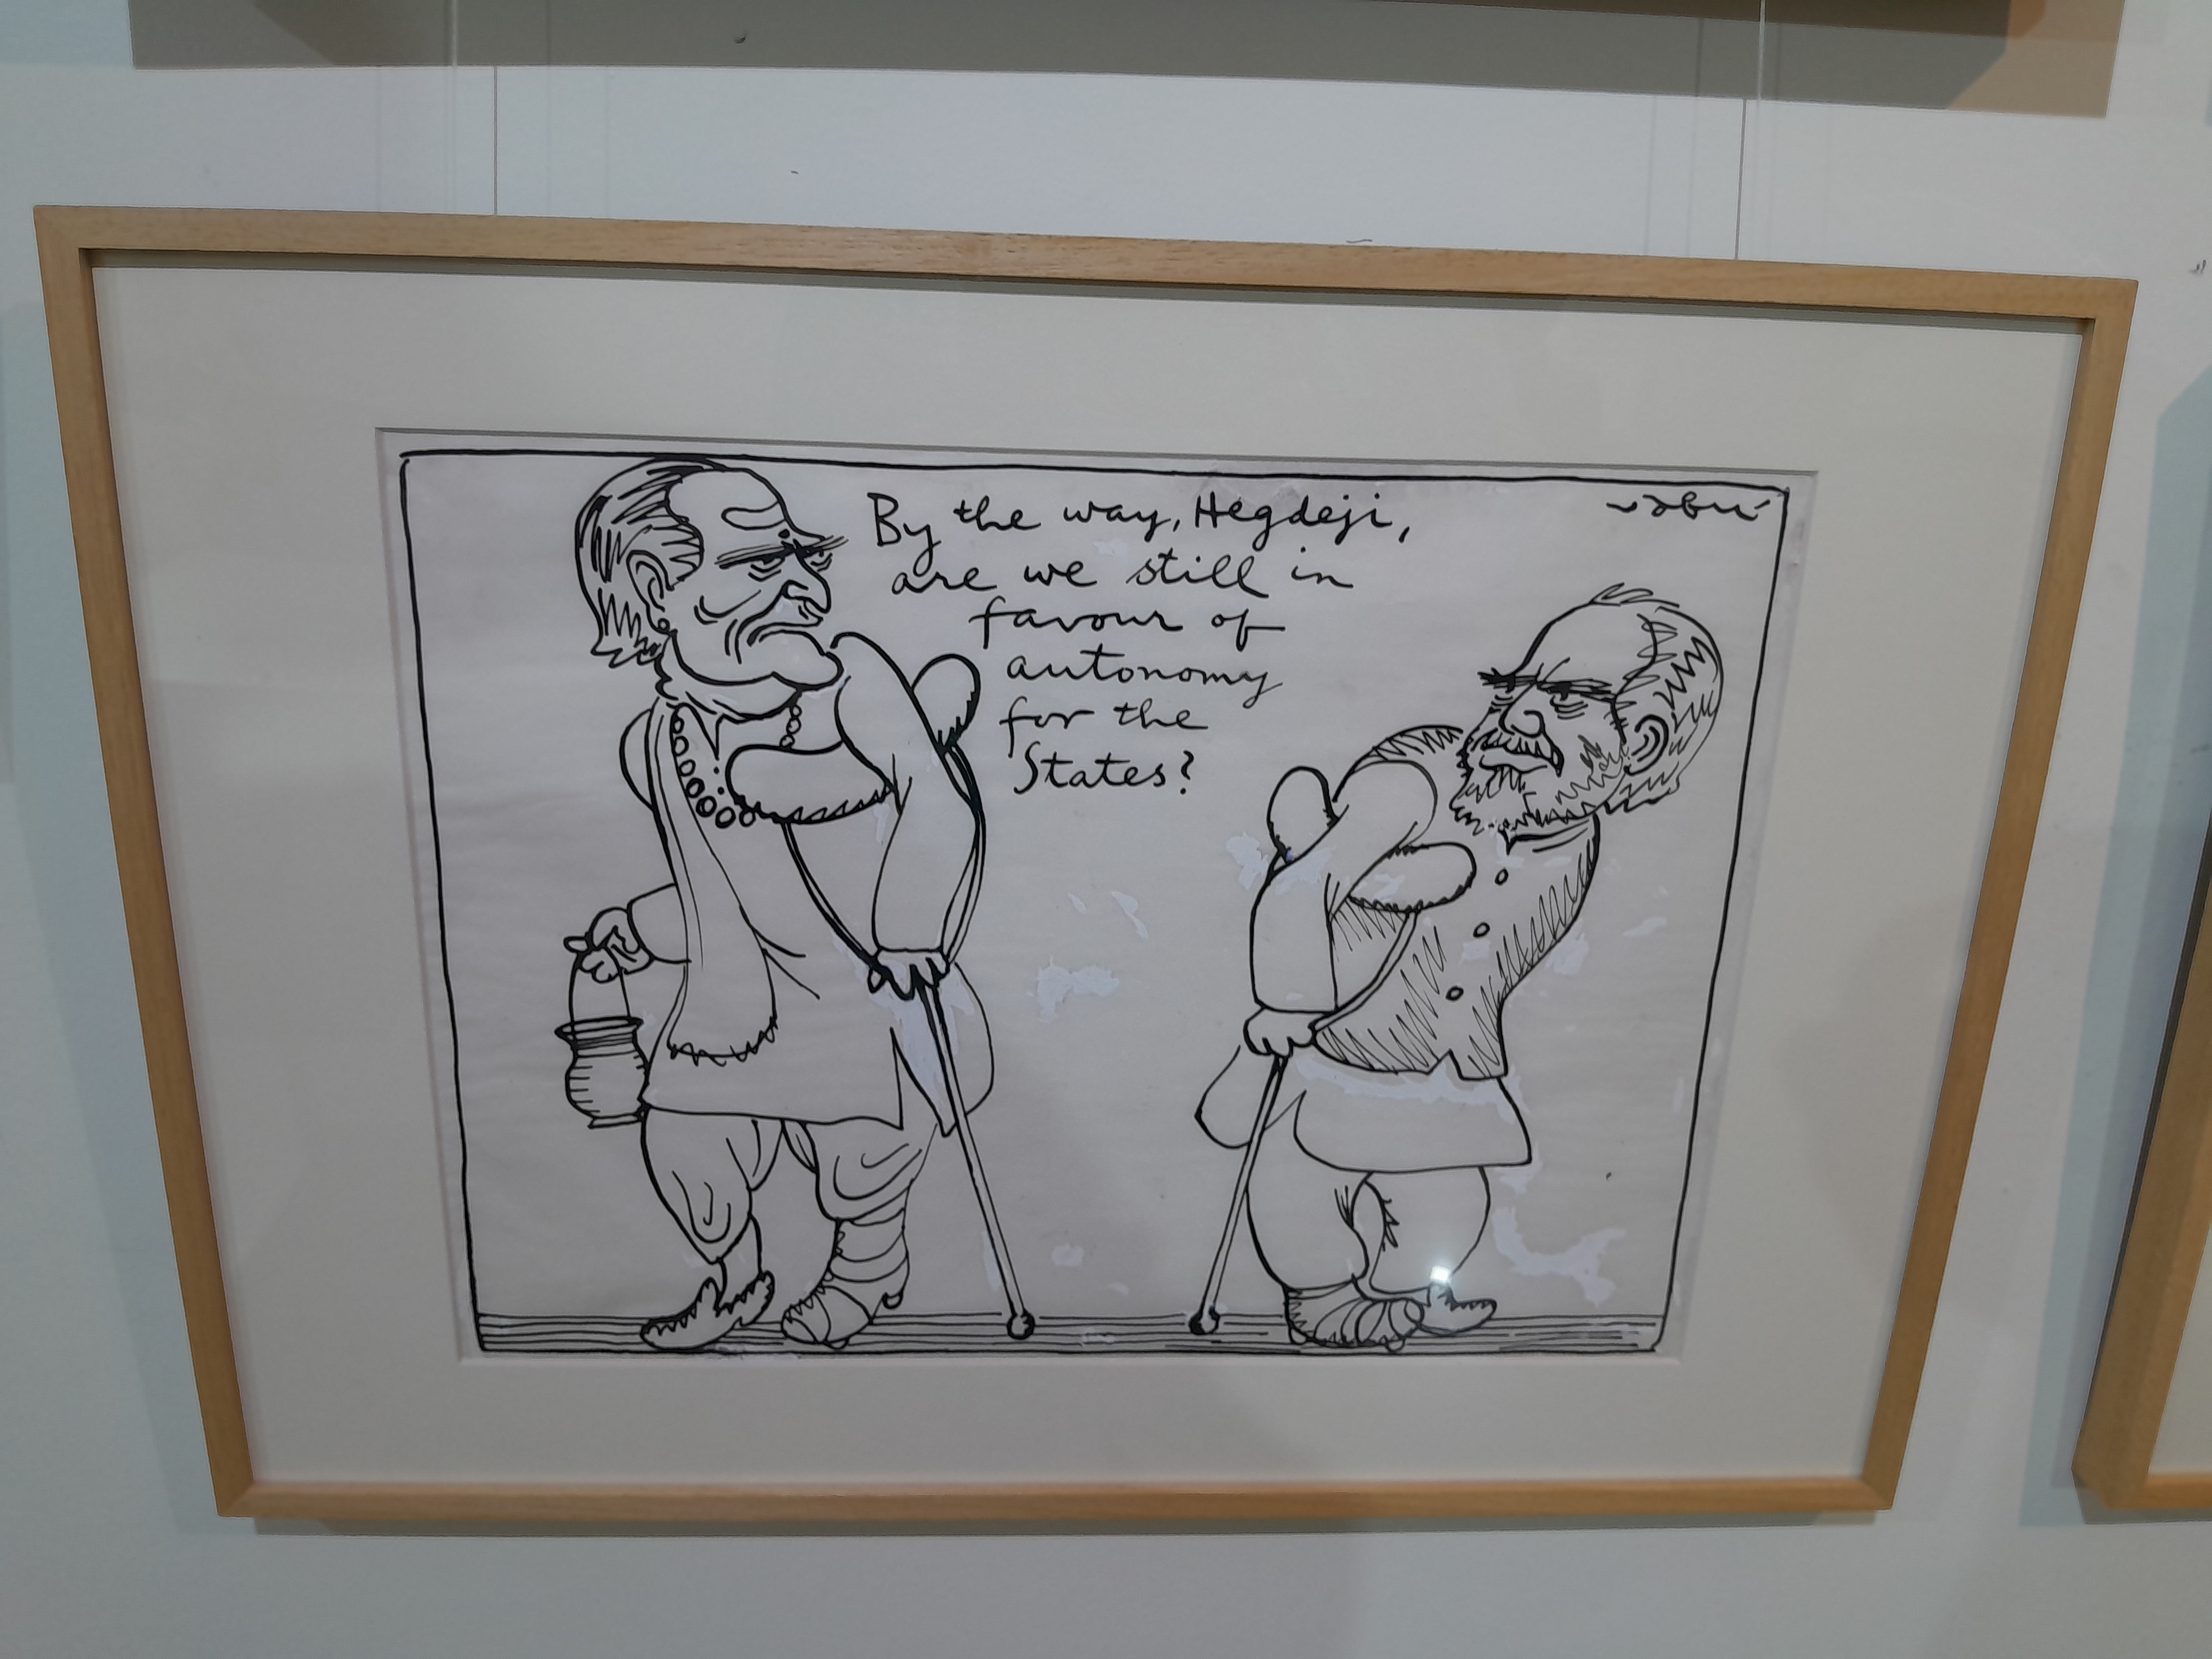 By the way, Hegdeji,
are we still in
favour of
autonomy
for the
States?
abu